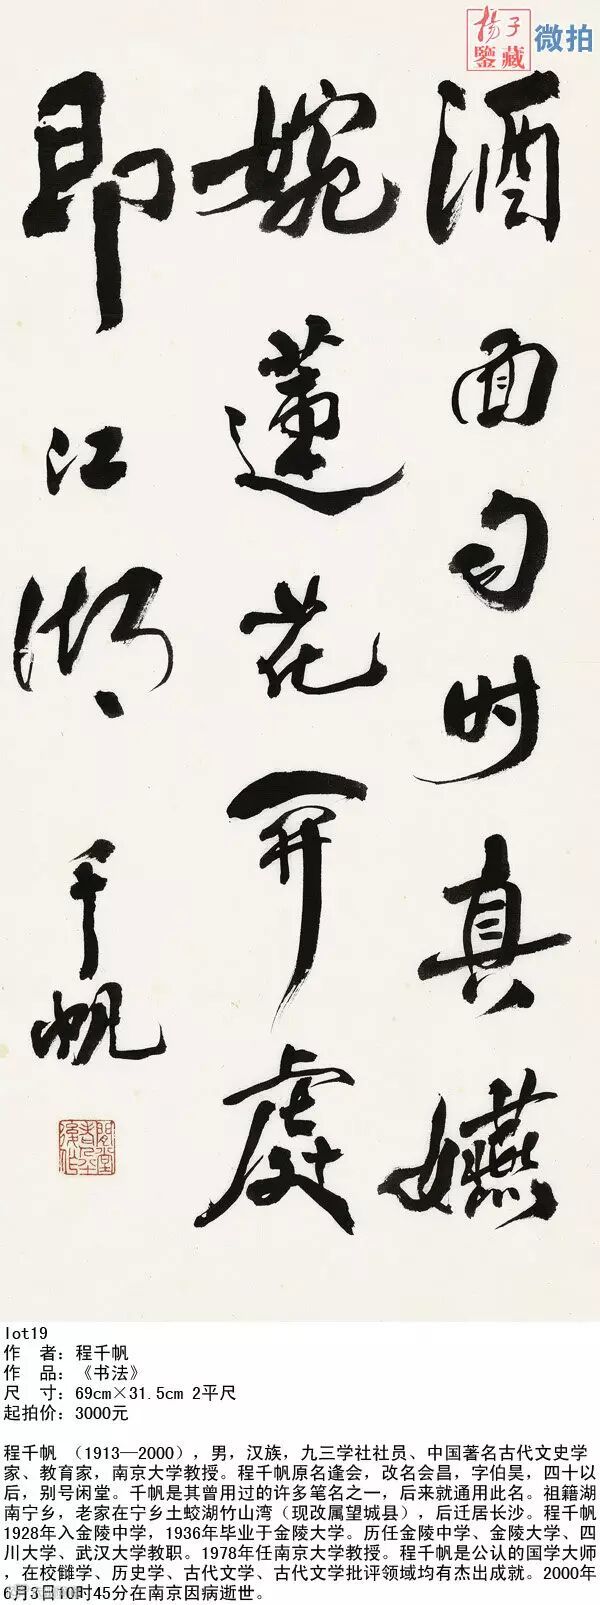 揚子
鑒藏
微拍
酒面匀时真嬿
婉蓮花開處
即江湖
千帆
lot19
作 者：程千帆
作 品：《书法》
尺 寸：69cm×31.5cm 2平尺
起拍价：3000元
程千帆 （1913—2000），男，汉族，九三学社社员、中国著名古代文史学
家、教育家，南京大学教授。程千帆原名逢会，改名会昌，字伯昊，四十以
后，别号闲堂。千帆是其曾用过的许多笔名之一，后来就通用此名。祖籍湖
南宁乡，老家在宁乡土蛟湖竹山湾（现改属望城县），后迁居长沙。程千帆
1928年入金陵中学，1936年毕业于金陵大学。历任金陵中学、金陵大学、四
川大学、武汉大学教职。1978年任南京大学教授。程千帆是公认的国学大师
，在校雠学、历史学、古代文学、古代文学批评领域均有杰出成就。2000年
6月3日10时45分在南京因病逝世。